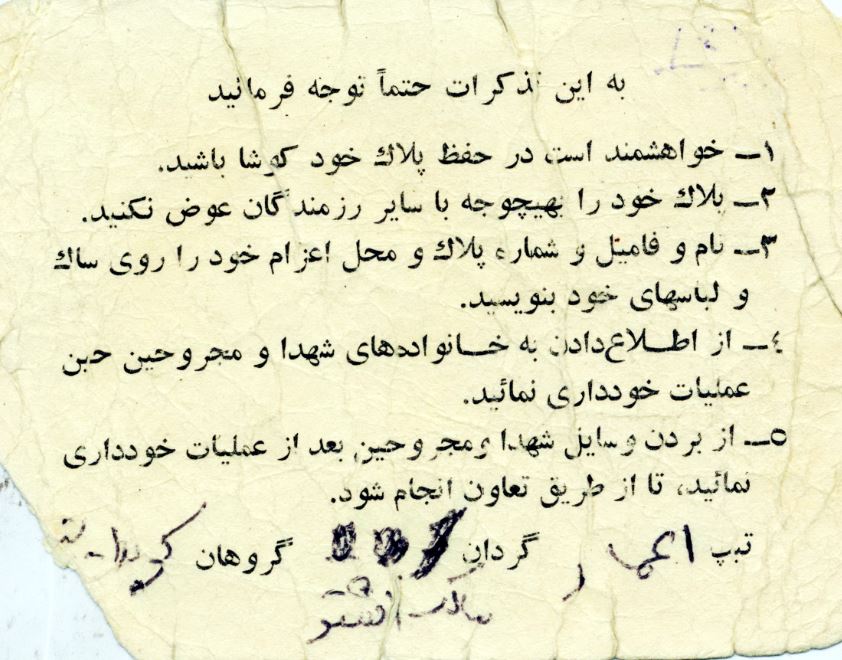 به این تذکرات حتماً توجه فرمائید
۱ـ خواهشمند است در حفظ پلاك خود کوشا باشید.
۲ـ پلاك خود را بهیچوجه با سایر رزمندگان عوض نکنید.
۳ـ نام و فامیل و شماره پلاك و محل اعزام خود را روی ساك
و لباسهای خود بنویسید.
٤ـ از اطـلاع‌دادن به خـانواده‌های شهدا و مجروحین حین
عملیات خودداری نمائید.
۵ـ از بردن وسایل شهدا ومجروحین بعد از عملیات خودداری
نمائید، تا از طریق تعاون انجام شود.
تیپ گردان گروهان
مالک اشتر